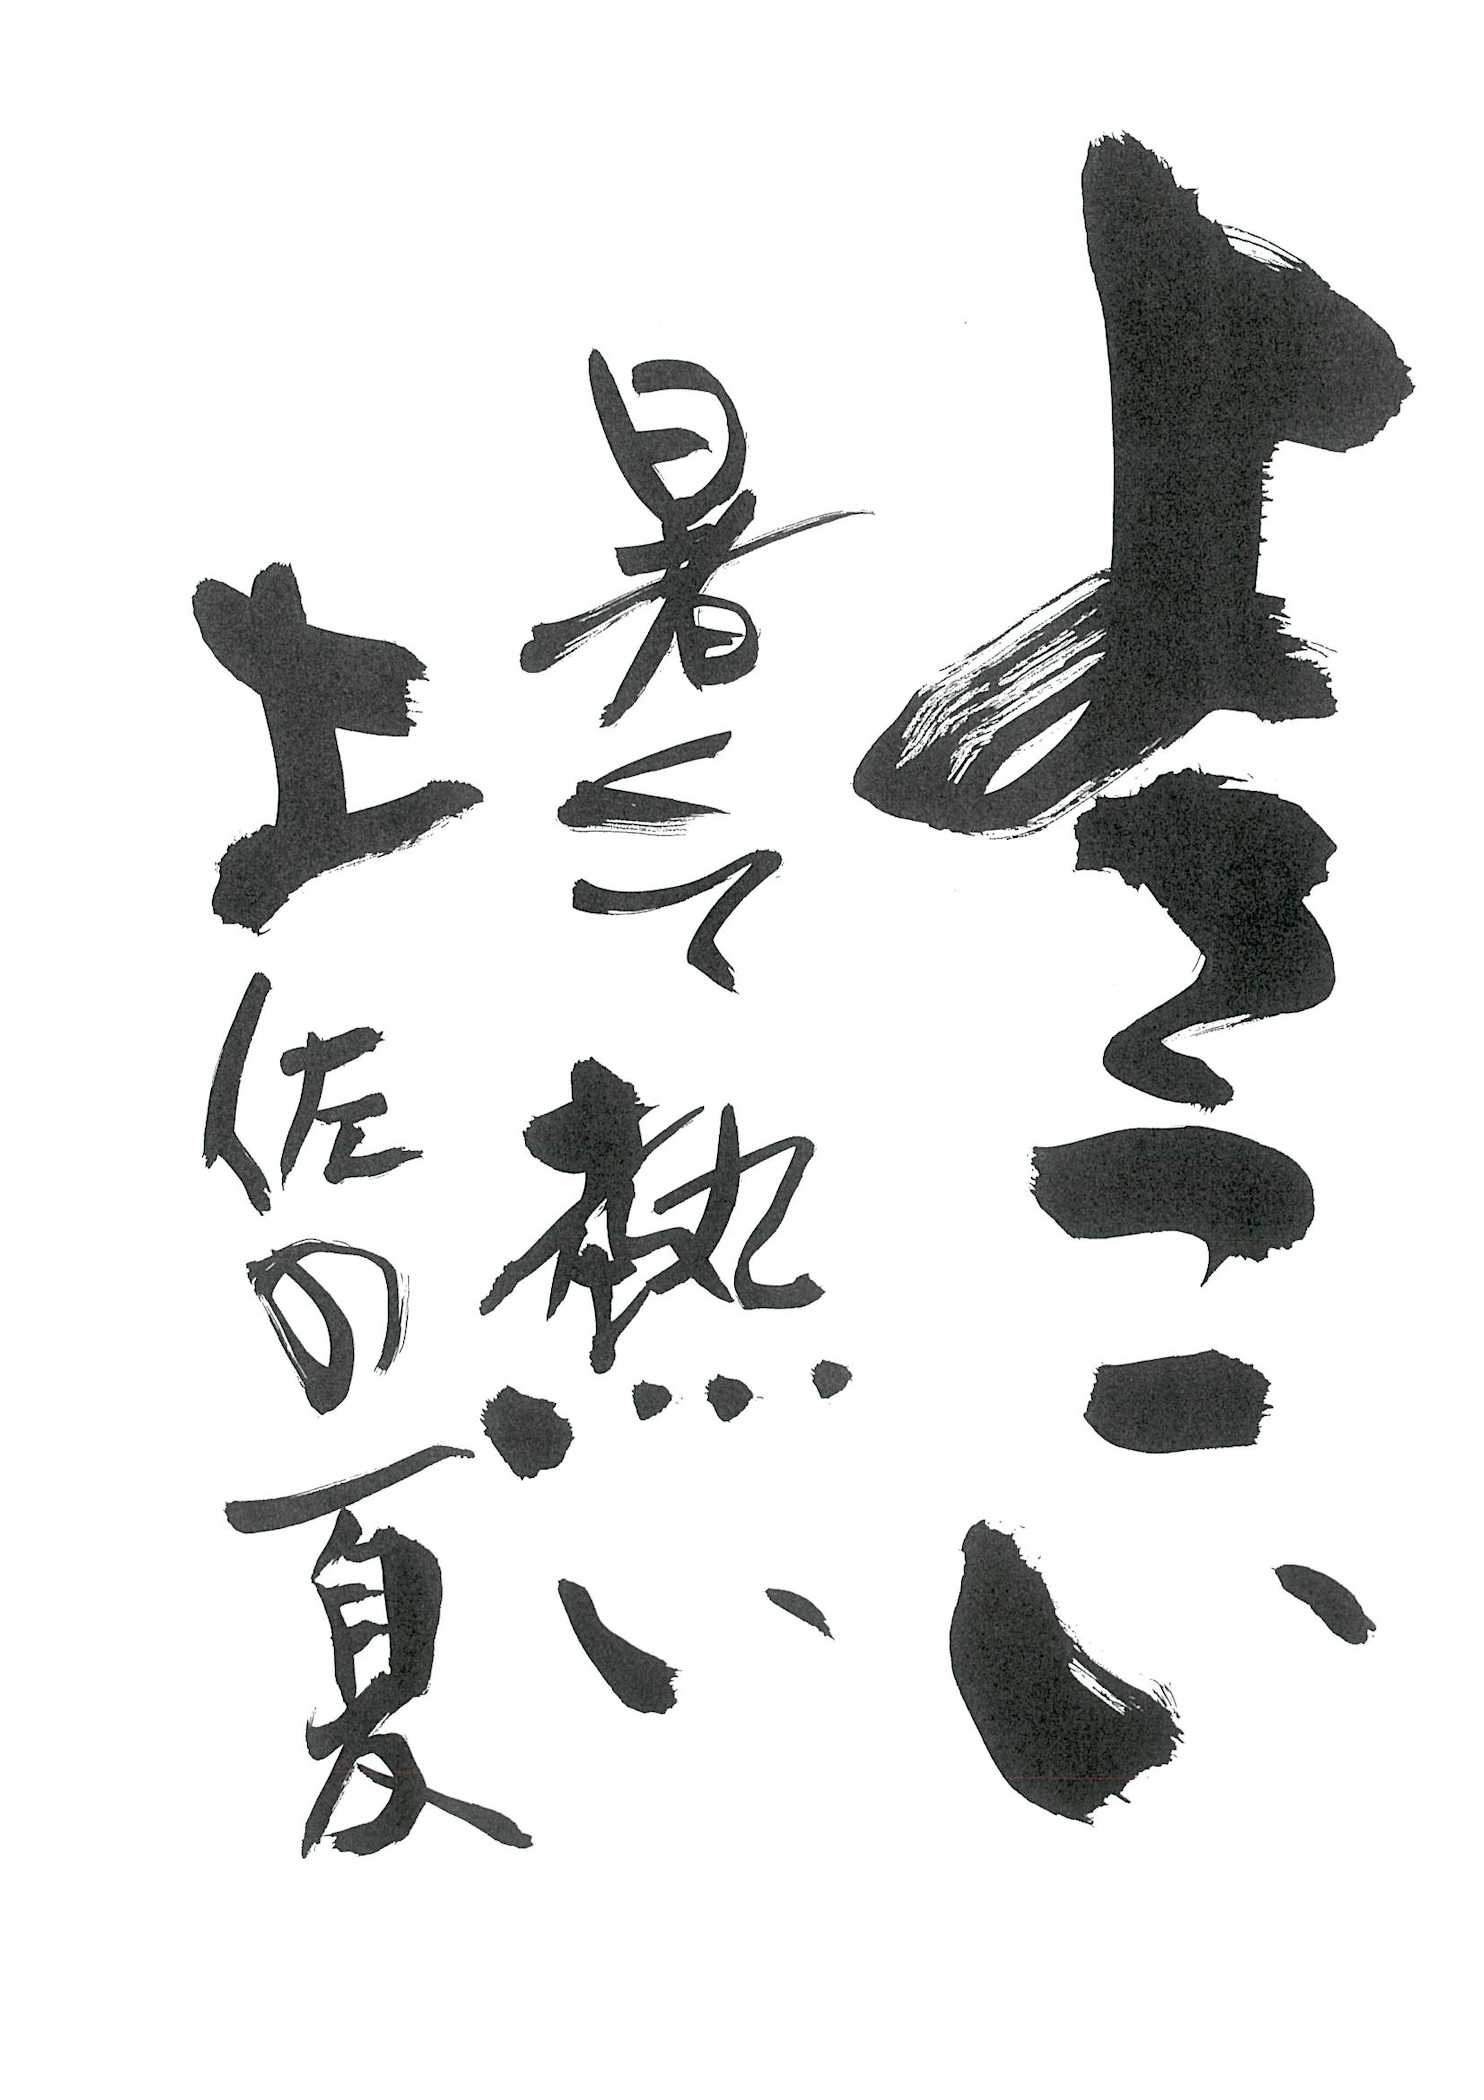 よさこい
暑くて熱い
土佐の夏